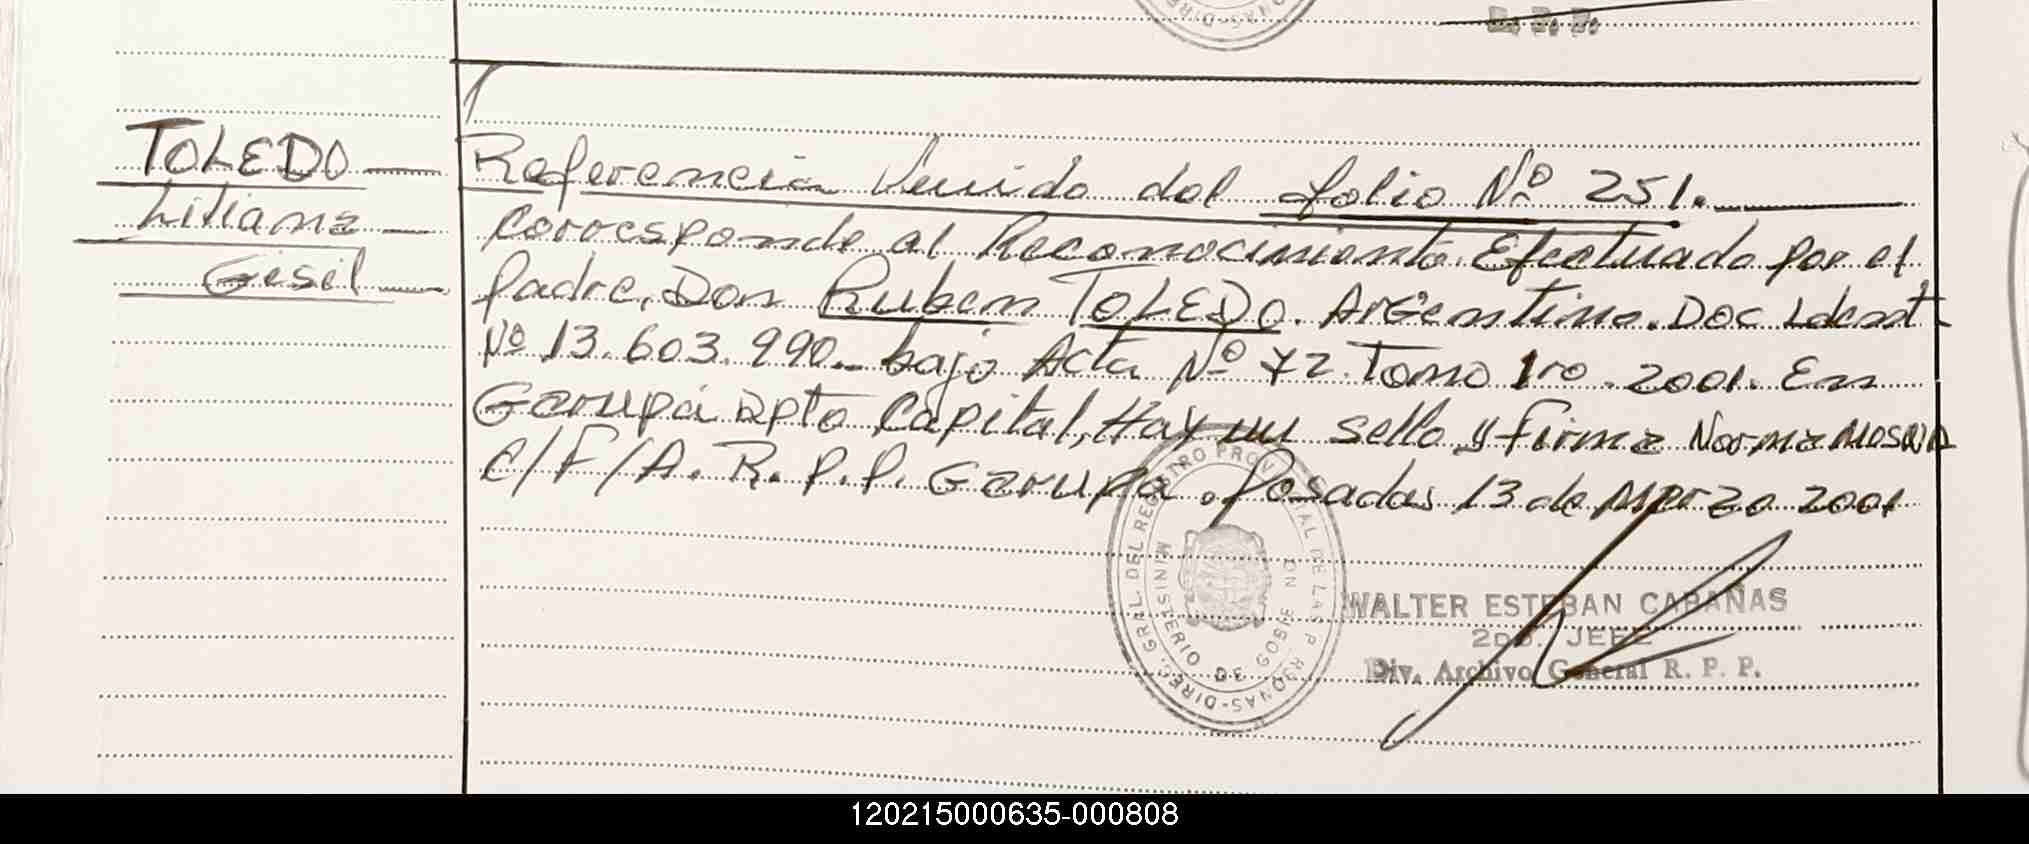 D. P. P.
TOLEDO
Liliana
Gisel
Referencia Venida del folio Nº 251.
Corresponde al Reconocimiento Efectuado por el
Padre, Don Ruben TOLEDO. Argentino. Doc Ident
Nº 13.603.990_ bajo Acta Nº 72. Tomo 1ro. 2001. En
Garupá Dpto Capital, Hay un sello y firma Norma
E/F/A. R. P. P. Garupa. Posadas 13 de Marzo 2001
DIREC. GRAL. DEL REGISTRO PROVINCIAL DE LAS P
MINISTERIO DE GOBIE
WALTER ESTEBAN CABAÑAS
2DO. JEFE
Div. Archivo General R. P. P.
120215000635-000808